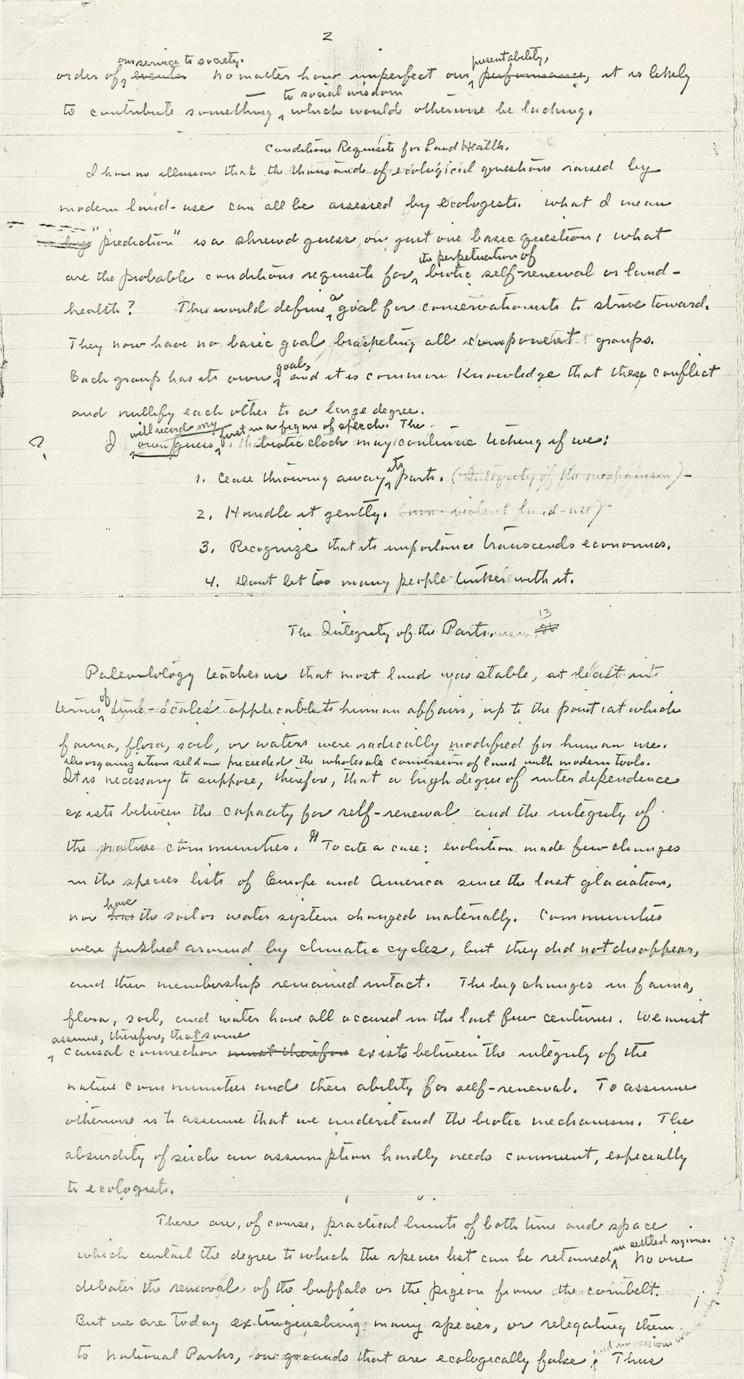 2
our service to society.
order of events no matter how imperfect our performance, it is likely
presentability,
to social wisdom
to contribute something, which would otherwise be lacking.
Conditions Requisite for Land Health.
I have no illusion that the thousands of ecological questions raised by
modern land-use can all be assessed by ecologists. What I mean
"prediction" is a shrewd guess on just one basic question: what
the perpetuation of
are the probable conditions requisite for biotic self-renewal or land-
health? This would define a goal for conservationists to strive toward.
They now have no basic goal bracketing all component groups.
goals,
Each group has its own and it is common knowledge that these conflict
and nullify each other to a large degree.
will record my first in a figure of speech. The
? I own guess, biotic clock may continue ticking if we:
1. Cease throwing away its parts. (Integrity of the mechanism)
2. Handle it gently. (non-violent land-use)
3. Recognize that its importance transcends economics.
4. Dont let too many people tinker with it.
The Integrity of the Parts. 13
Paleontology teaches us that most land was stable, at least in
terms of time-scales applicable to human affairs, up to the point at which
fauna, flora, soil, or waters were radically modified for human use.
Disorganization seldom preceded the wholesale conversion of land with modern tools.
It is necessary to suppose, therefore, that a high degree of interdependence
exists between the capacity for self-renewal and the integrity of
the native communities. ¶ To cite a case: evolution made few changes
in the species lists of Europe and America since the last glaciation,
nor have the soil or water system changed materially. Communities
were pushed around by climatic cycles, but they did not disappear,
and their membership remained intact. The big changes in fauna,
flora, soil, and water have all occured in the last few centuries. We must
assume, therefore, that some
causal connection must therefore exists between the integrity of the
native communities and their ability for self-renewal. To assume
otherwise is to assume that we understand the biotic mechanism. The
absurdity of such an assumption hardly needs comment, especially
to ecologists.
There are, of course, practical limits of both time and space
which curtail the degree to which the species list can be retained in settled regions. No one
debates the removal of the buffalo or the pigeon from the cornbelt.
But we are today extinguishing many species, or relegating them
to National Parks, on grounds that are ecologically false; Thus